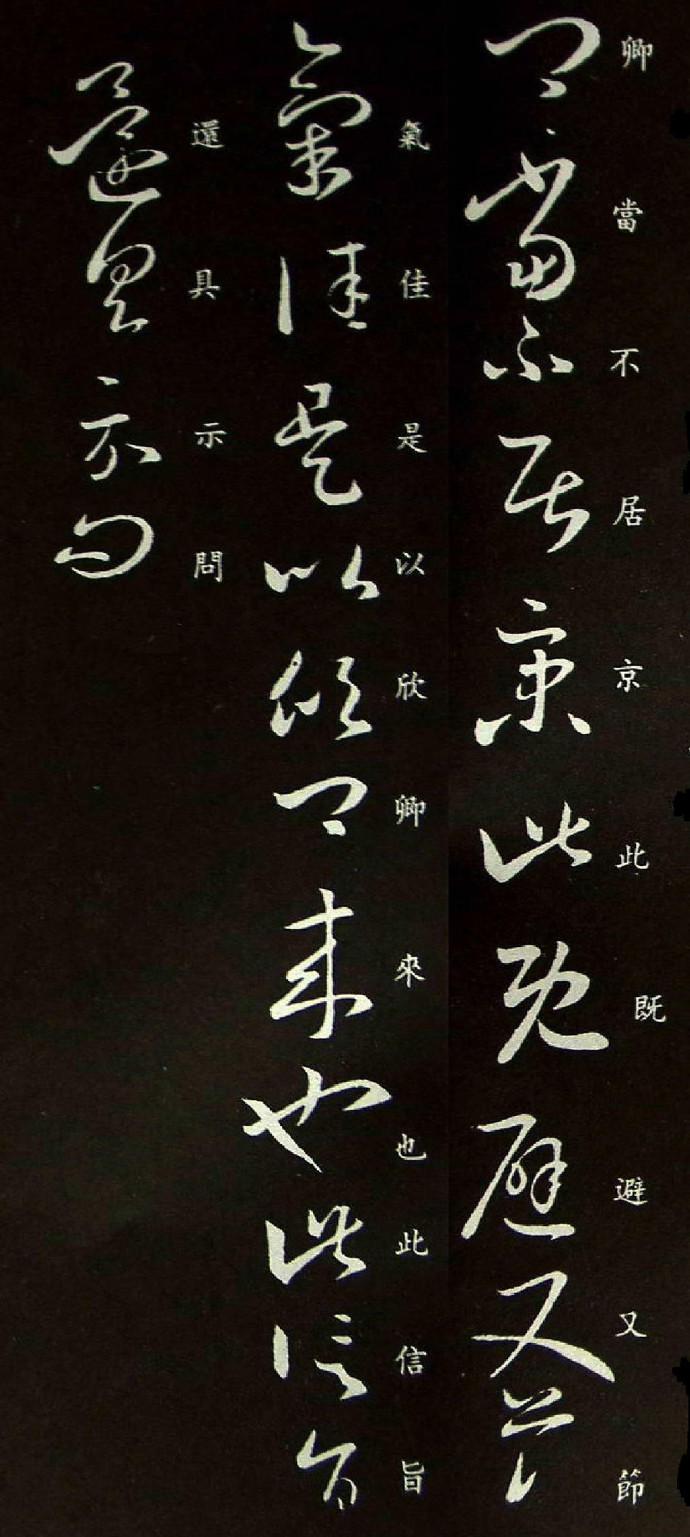 卿當不居京此既避又節
氣佳是以欣卿來也此信旨
還具示問